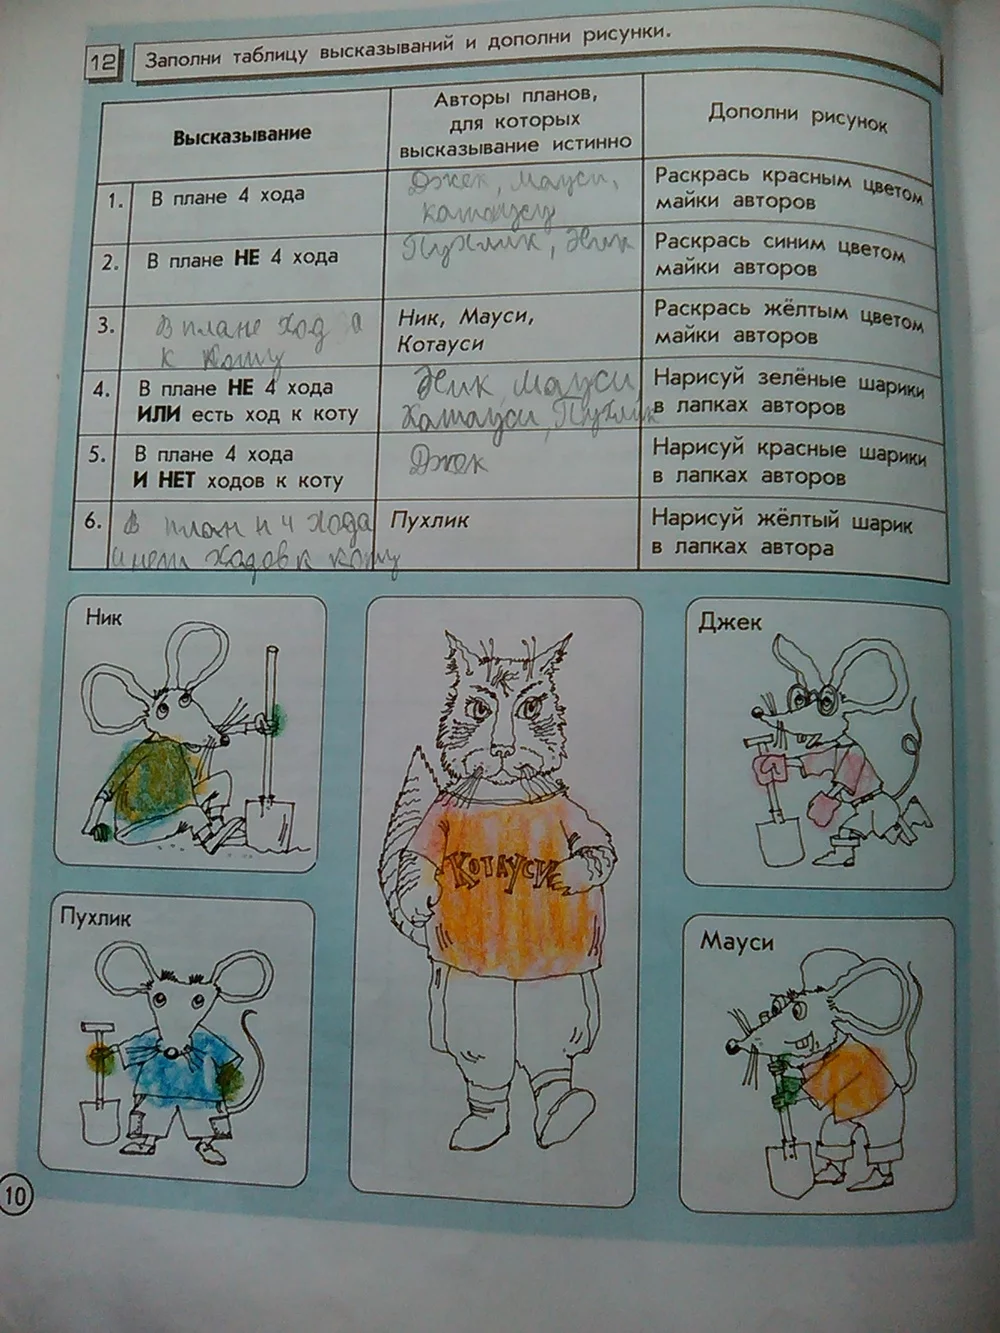 12 Заполни таблицу высказываний и дополни рисунки.
Высказывание
Авторы планов,
для которых
высказывание истинно
Дополни рисунок
1. В плане 4 хода
Джек, Мауси,
Котауси
Раскрась красным цветом
майки авторов
2. В плане НЕ 4 хода
Пухлик, Ник
Раскрась синим цветом
майки авторов
3. В плане ход
к коту
Ник, Мауси,
Котауси
Раскрась жёлтым цветом
майки авторов
4. В плане НЕ 4 хода
ИЛИ есть ход к коту
Ник Мауси
Котауси, Пухлик
Нарисуй зелёные шарики
в лапках авторов
5. В плане 4 хода
И НЕТ ходов к коту
Джек
Нарисуй красные шарики
в лапках авторов
6. В план н 4 хода
и нет ходов к коту
Пухлик
Нарисуй жёлтый шарик
в лапках автора
Ник
КОТАУСИ
Джек
Пухлик
Мауси
10